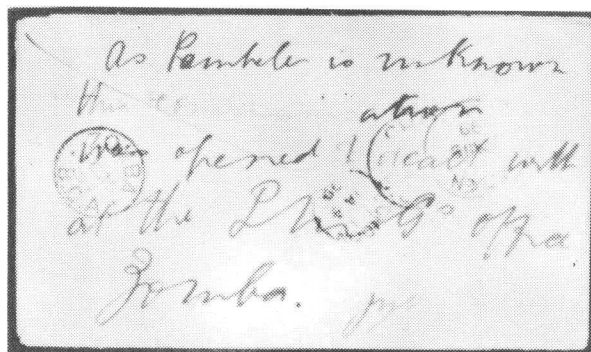 As Pembele is unknown
this communication
was opened & dealt with
at the P.M.G's office
Zomba.